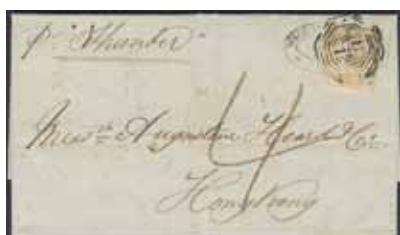 p. "Thunder"
Mess.rs Augustine Heard & Co.
Hong Kong